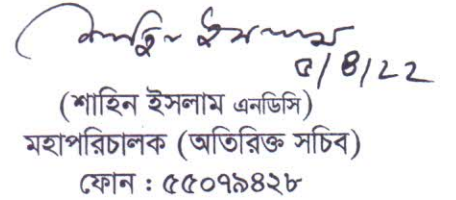 শাহিন ইসলাম
৫/৪/২২
(শাহিন ইসলাম এনডিসি)
মহাপরিচালক (অতিরিক্ত সচিব)
ফোন : ৫৫০৭৯৪২৮